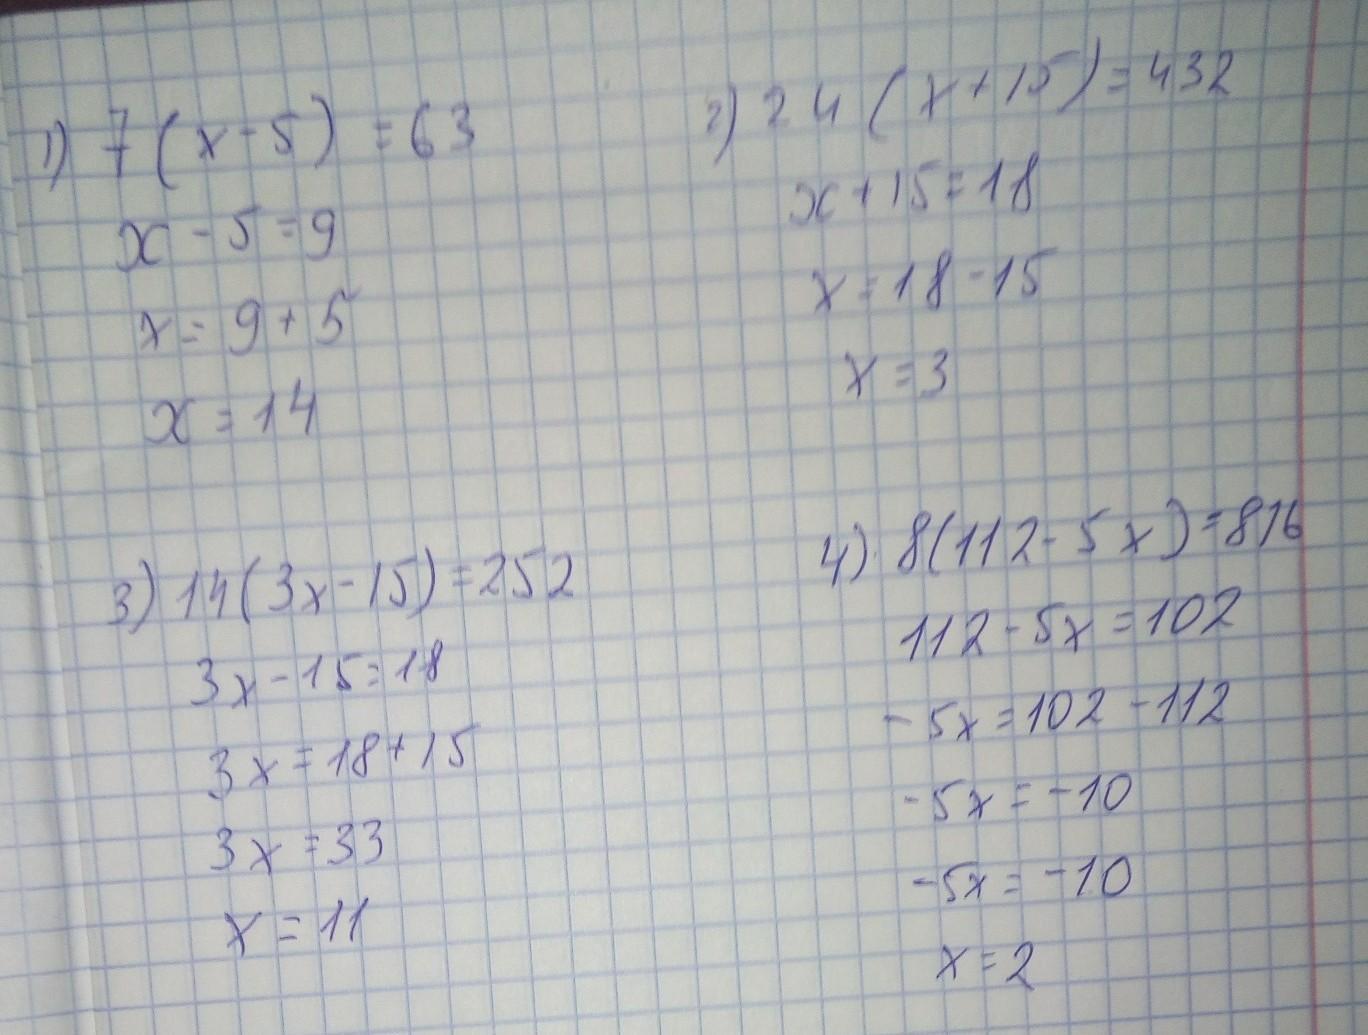 1) 7(x-5) = 63
x-5=9
x=9+5
x=14
2) 24(x+15)=432
x+15=18
x=18-15
x=3
3) 14(3x-15)=252
3x-15=18
3x=18+15
3x=33
x=11
4) 8(112-5x)=816
112-5x=102
-5x=102-112
-5x=-10
-5x=-10
x=2